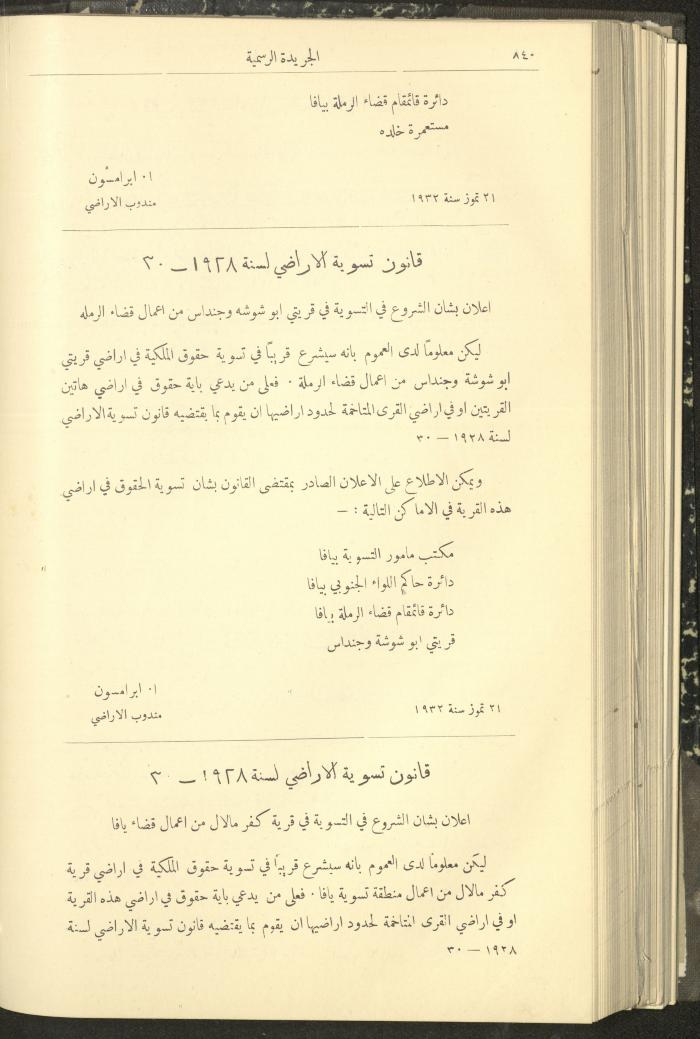 ٨٤٠ الجريدة الرسمية
دائرة قائمقام قضاء الرملة بيافا
مستعمرة خلده
ا٠ ابرامسون
٢١ تموز سنة ١٩٣٢ مندوب الاراضي
قانون تسوية الاراضي لسنة ١٩٢٨ – ٣٠
اعلان بشان الشروع في التسوية في قريتي ابو شوشه وجنداس من اعمال قضاء الرمله
ليكن معلومًا لدى العموم بانه سيشرع قريبًا في تسوية حقوق الملكية في اراضي قريتي
ابو شوشة وجنداس من اعمال قضاء الرملة ٠ فعلى من يدعي باية حقوق في اراضي هاتين
القريتين او في اراضي القرى المتاخمة لحدود اراضيها ان يقوم بما يقتضيه قانون تسوية الاراضي
لسنة ١٩٢٨ – ٣٠
ويمكن الاطلاع على الاعلان الصادر بمقتضى القانون بشان تسوية الحقوق في اراضي
هذه القرية في الاماكن التالية : –
مكتب مامور التسوية بيافا
دائرة حاكم اللواء الجنوبي بيافا
دائرة قائمقام قضاء الرملة بيافا
قريتي ابو شوشة وجنداس
ا٠ ابرامسون
٢١ تموز سنة ١٩٣٢ مندوب الاراضي
قانون تسوية الاراضي لسنة ١٩٢٨ – ٣٠
اعلان بشان الشروع في التسوية في قرية كفر مالال من اعمال قضاء يافا
ليكن معلومًا لدى العموم بانه سيشرع قريبًا في تسوية حقوق الملكية في اراضي قرية
كفر مالال من اعمال منطقة تسوية يافا ٠ فعلى من يدعي باية حقوق في اراضي هذه القرية
او في اراضي القرى المتاخمة لحدود اراضيها ان يقوم بما يقتضيه قانون تسوية الاراضي لسنة
١٩٢٨ – ٣٠